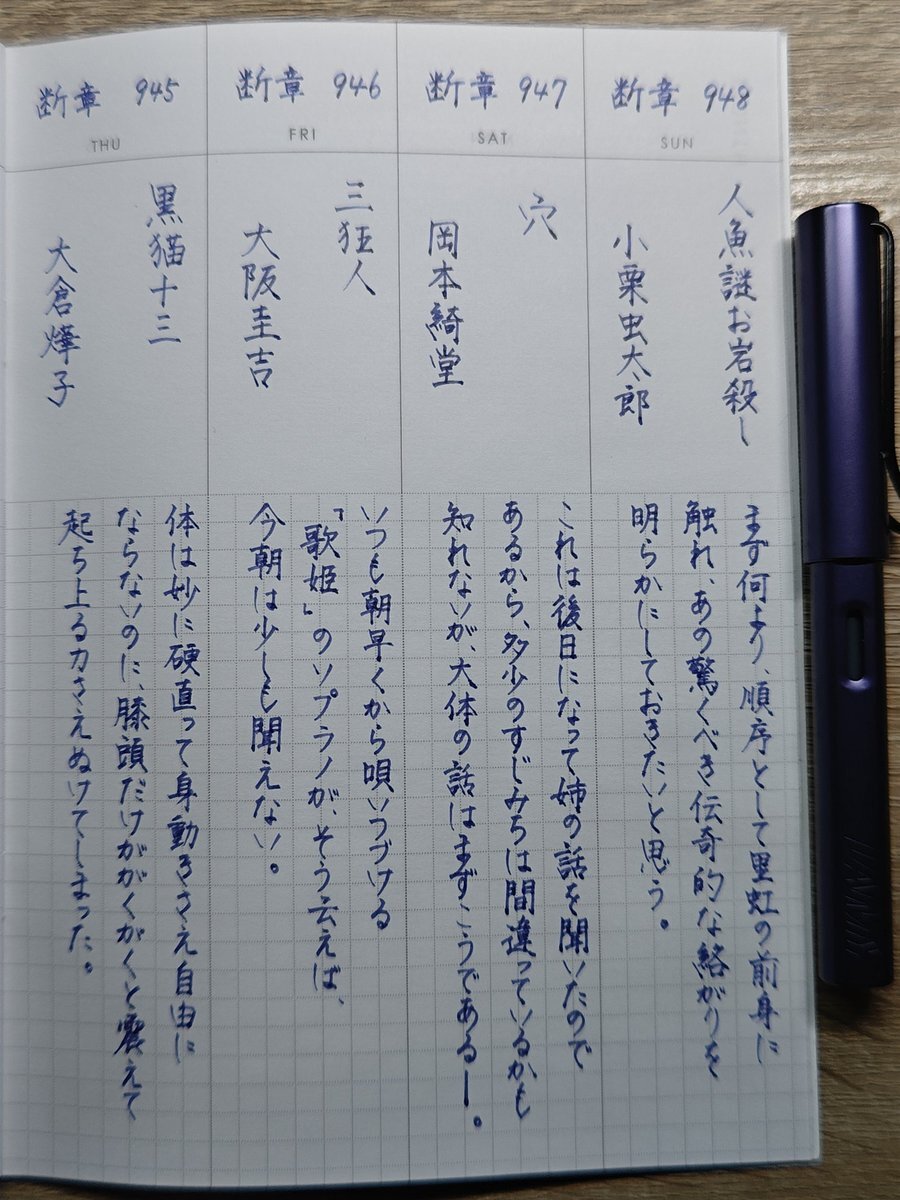 断章 945
THU
黒猫十三
大倉燁子
体は妙に硬直って身動きさえ自由に
ならないのに、膝頭だけががくがくと震えて
起ち上る力さえぬけてしまった。
断章 946
FRI
三狂人
大阪圭吉
いつも朝早くから唄いつづける
「歌姫」のソプラノが、そう云えば、
今朝は少しも聞えない。
断章 947
SAT
穴
岡本綺堂
これは後日になって姉の話を聞いたので
あるから、多少のすじみちは間違っているかも
知れないが、大体の話はまずこうである―。
断章 948
SUN
人魚謎お岩殺し
小栗虫太郎
まず何より、順序として里虹の前身に
触れ、あの驚くべき伝奇的な絡がりを
明らかにしておきたいと思う。
LAMY